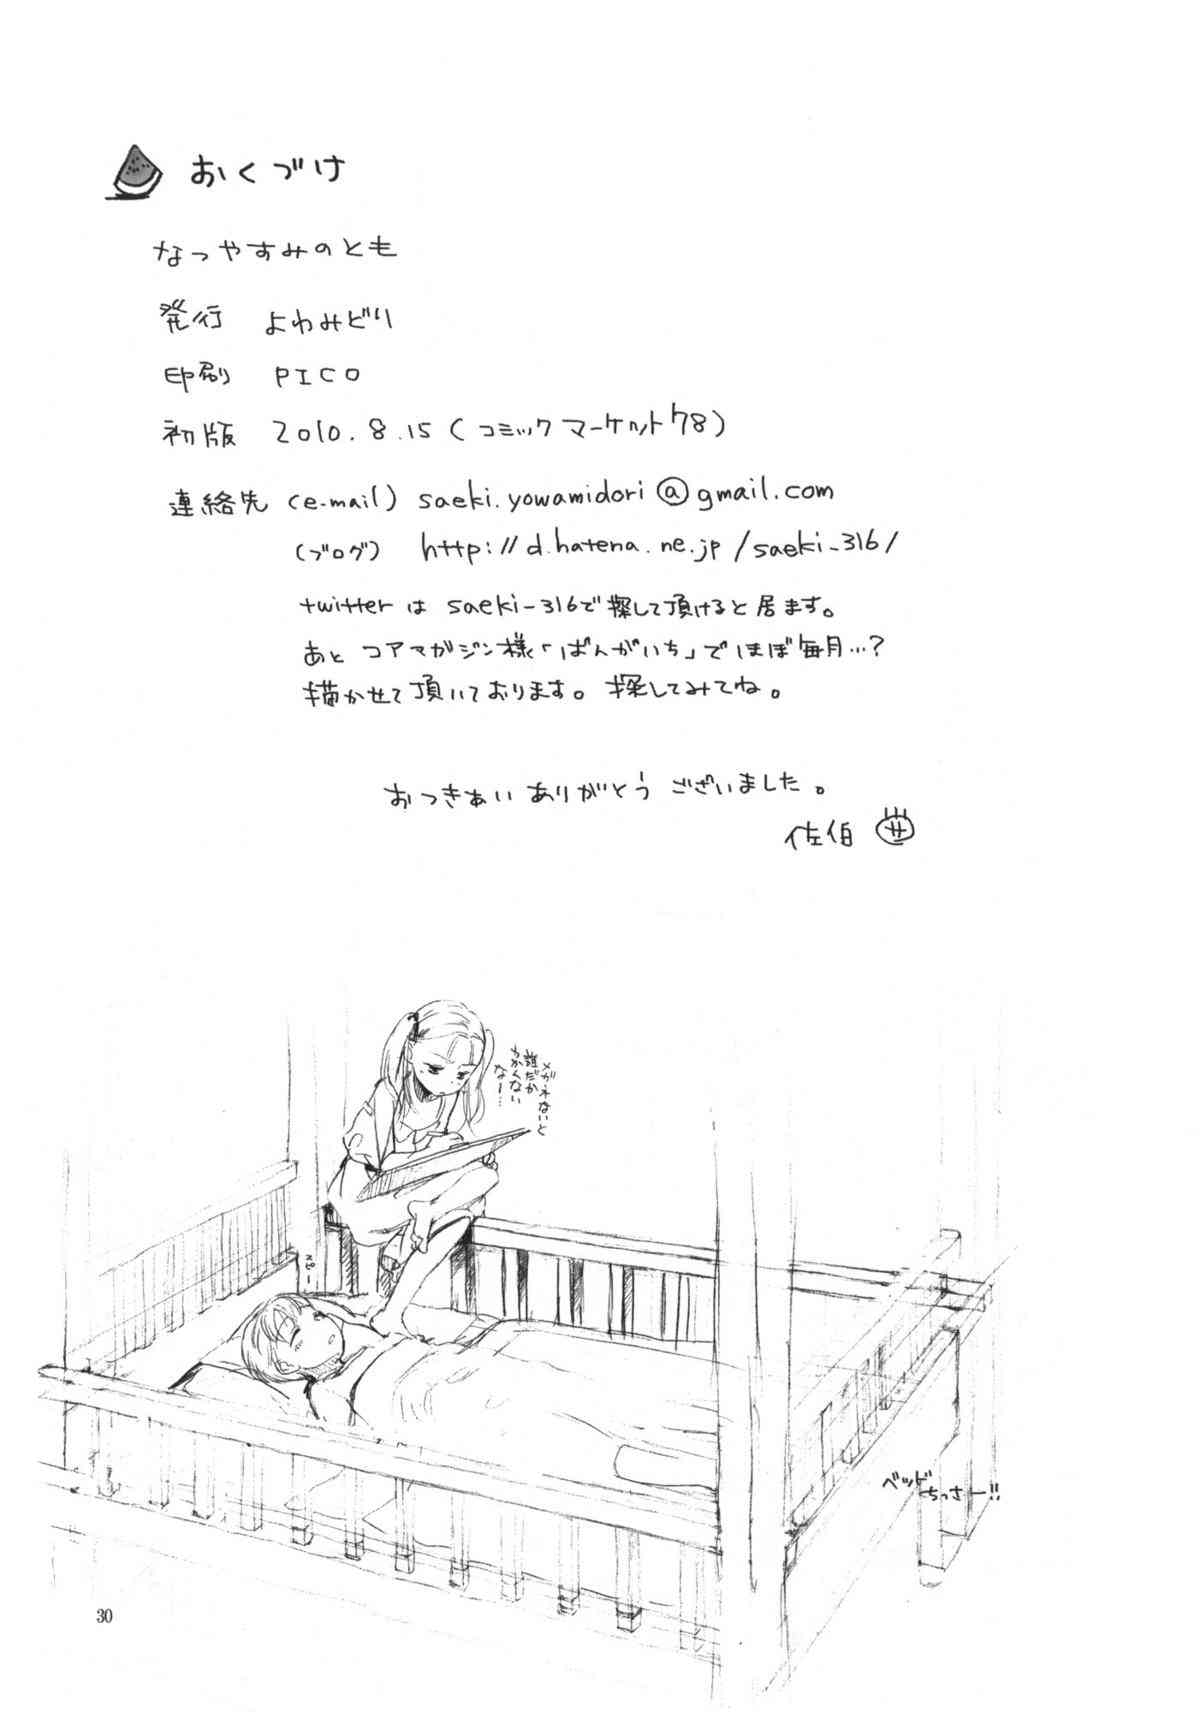 おくづけ
なつやすみのとも
発行 よわみどり
印刷 PICO
初版 2010.8.15(コミックマーケット78)
連絡先 (e-mail) saeki.yowamidori@gmail.com
(ブログ) http://d.hatena.ne.jp/saeki_316/
twitterはsaeki_316で探して頂けると居ます。
あと コアマガジン様「ばんがいち」でほぼ毎月…?
描かせて頂いております。探してみてね。
おつきあい ありがとう ございました。
佐伯 サ
メガネないと
誰だか
わかんない
なー…
ベッド
ちっさー!!
30